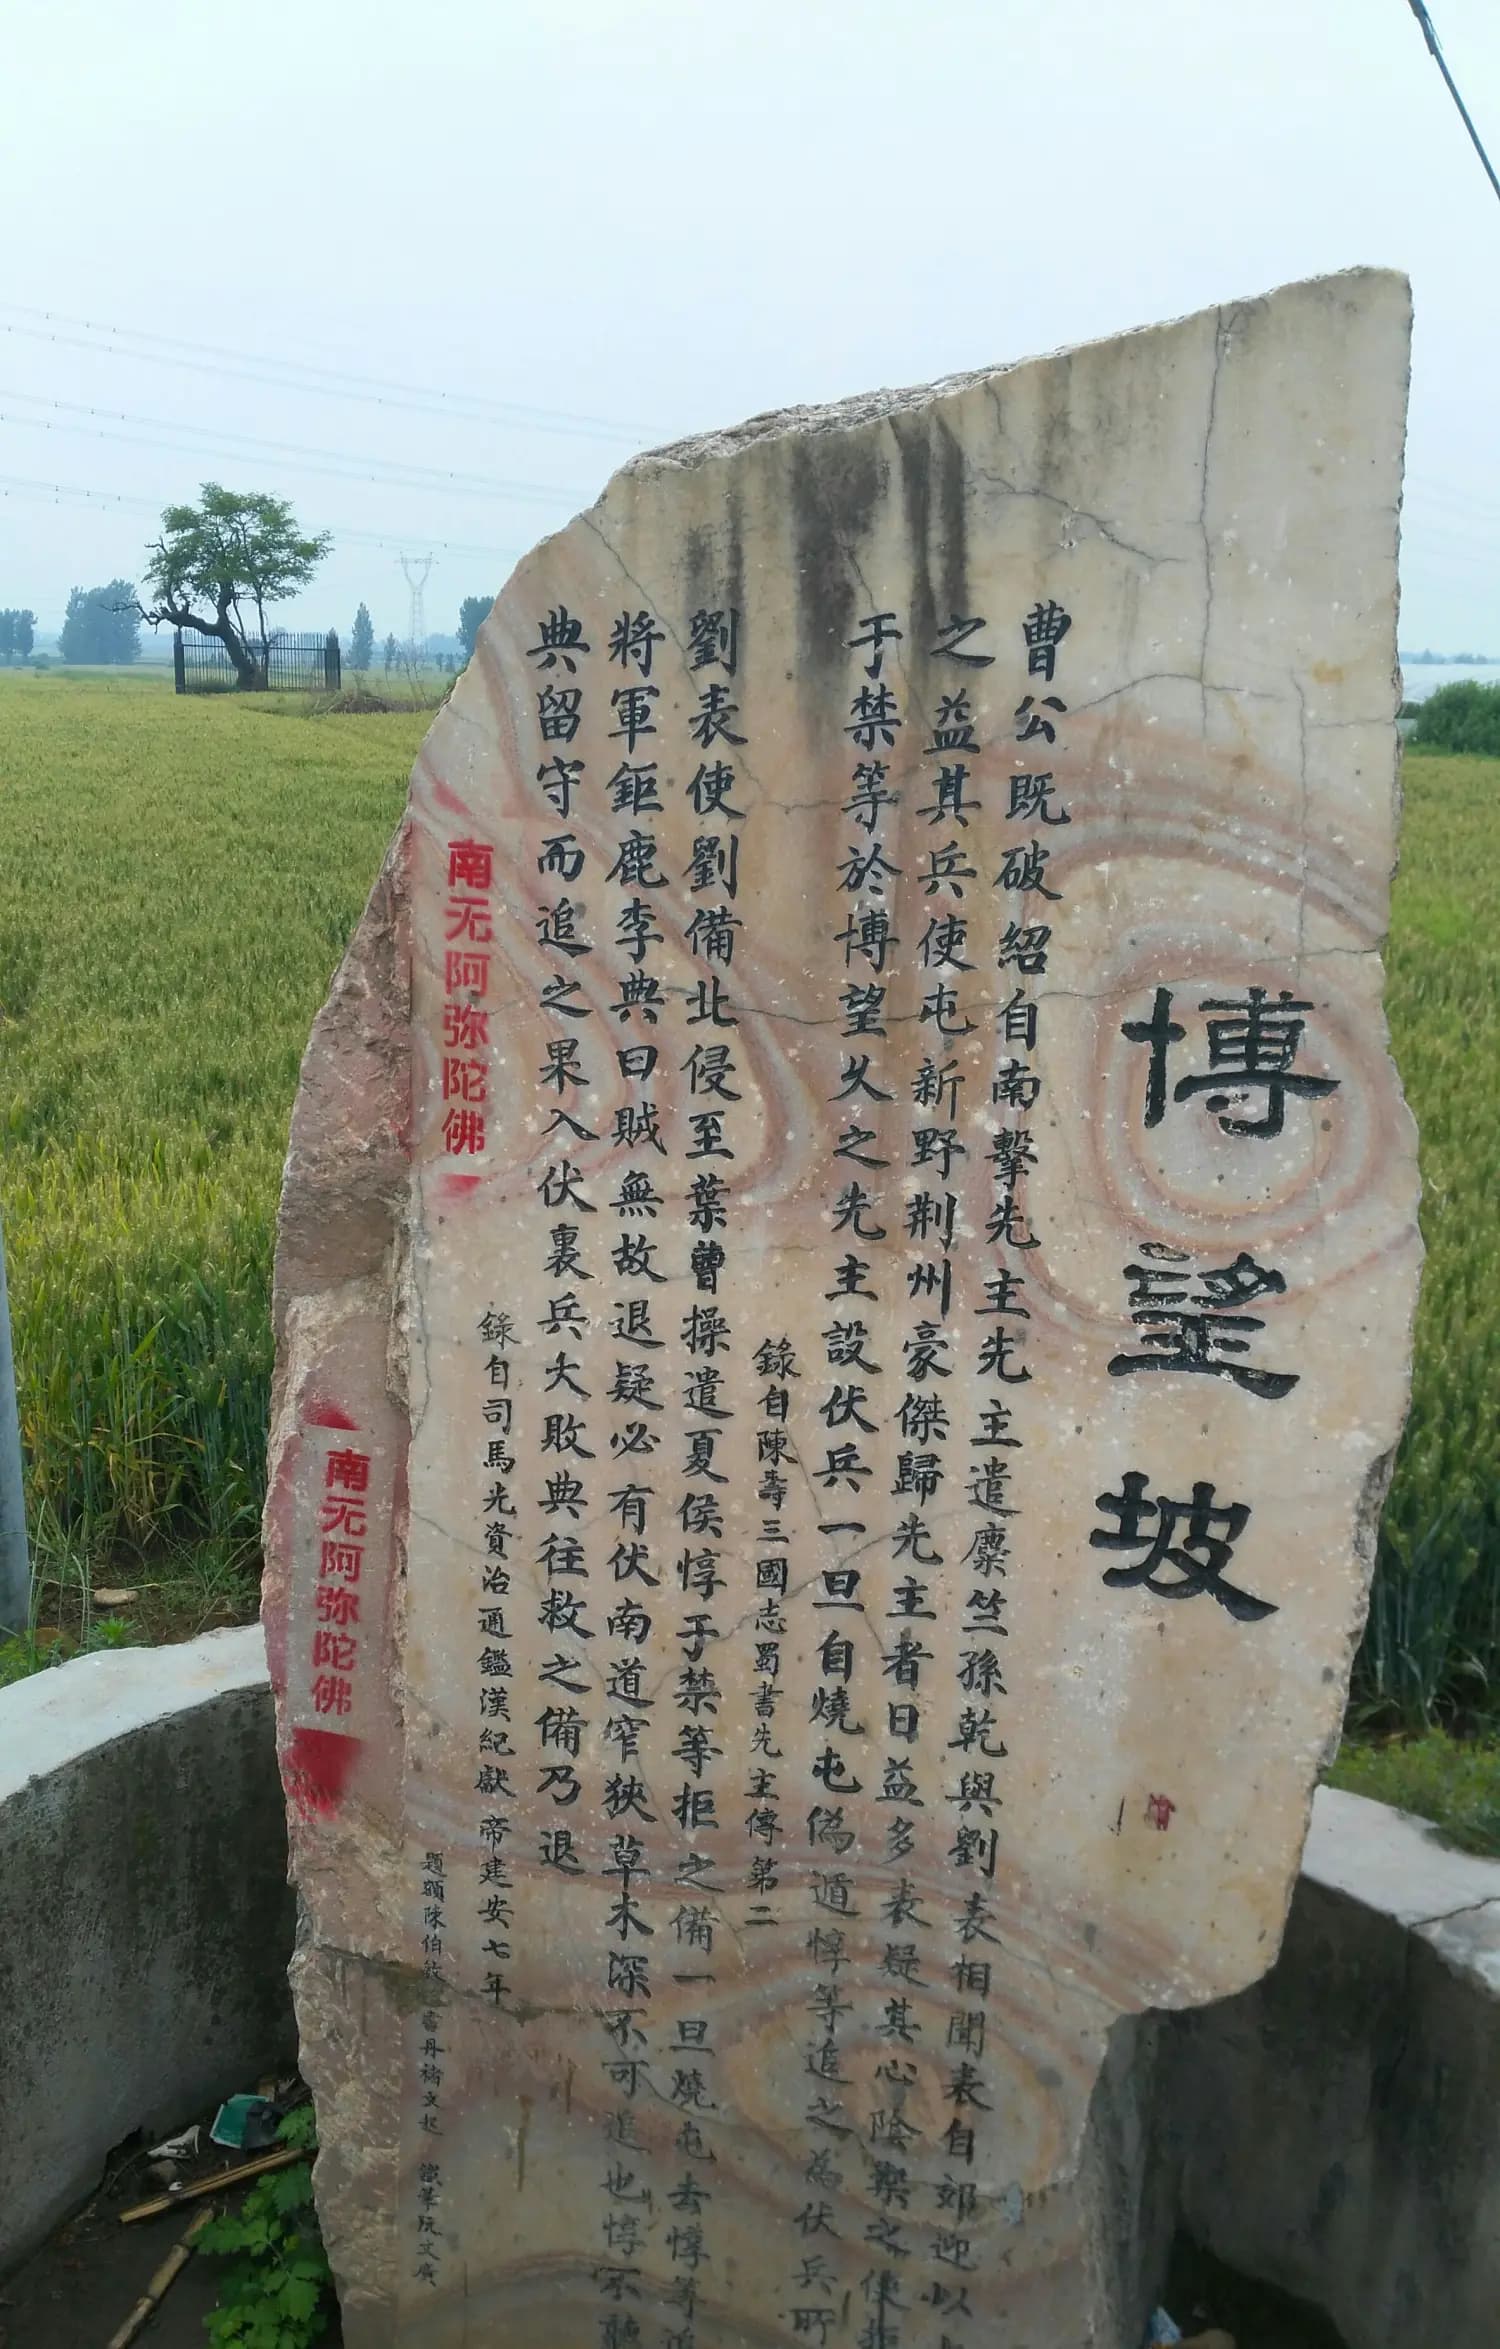 博望坡
曹公既破紹自南擊先主先主遣麋竺孫乾與劉表相聞表自郊迎以
之益其兵使屯新野荆州豪傑歸先主者日益多表疑其心陰禦之使拒
于禁等於博望久之先主設伏兵一旦自燒屯偽遁惇等追之為伏兵所
錄自陳壽三國志蜀書先主傳第二
劉表使劉備北侵至葉曹操遣夏侯惇于禁等拒之備一旦燒屯去惇等追
將軍鉅鹿李典曰賊無故退疑必有伏南道窄狹草木深不可追也惇不聽
典留守而追之果入伏裏兵大敗典往救之備乃退
錄自司馬光資治通鑑漢紀獻帝建安七年
題額陳伯敏 書丹 文 鐵筆阮文廣
南无阿弥陀佛
南无阿弥陀佛